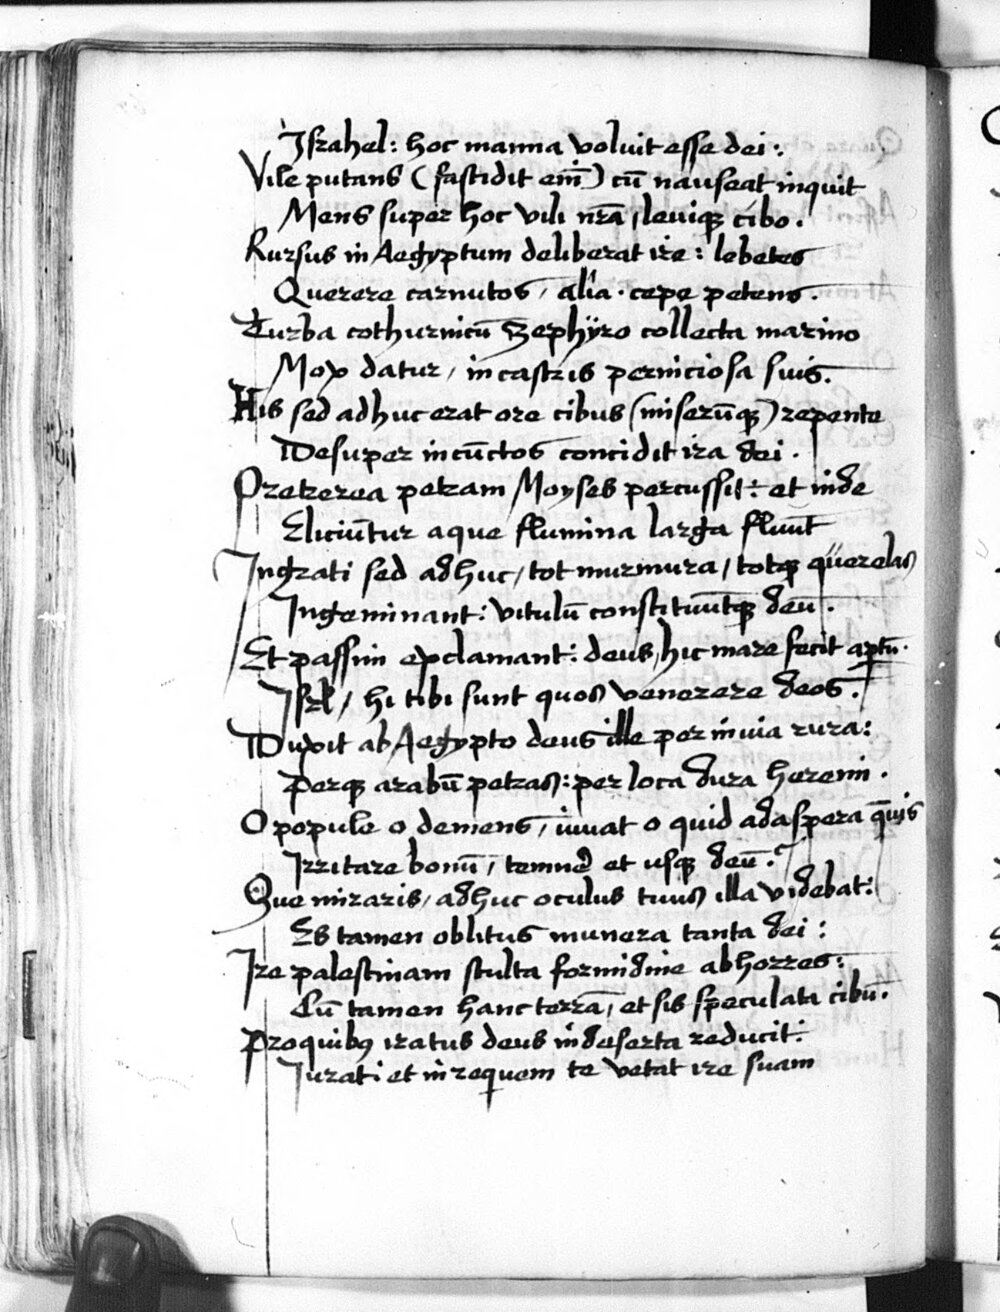 Israhel: hoc manna voluit esse dei:.
Vile putans (fastidit em̄) cū nauseat inquit
Mens super hoc vili nr̄a, leuiqꝫ cibo.
Rursus in Aegyptum deliberat ire: lebetes
Querere carnutos, alia. cepe petens.
Turba cothurnicū Zephÿro collecta marino
Mox datur, in castris perniciosa suis.
His sed adhuc erat ore cibus (miserūqꝫ) repente
Desuper in cūctos concidit ira dei.
Preterea petram Moyses percussit: et inde
Eliciūtur aque flumina larga fluūt
Ingrati sed adhuc, tot murmura, totqꝫ querelas
Ingeminant: vitulū constituūtqꝫ deū.
Et passim exclamant: deus hic mare fecit aptū.
Isrl, hi tibi sunt quos venerere deos.
Duxit ab Aegypto deus ille per inuia rura:
Perqꝫ arabū petras: per loca dura heremi.
O popule o demens, iuuat o quid ad aspera quīs
Irritare bonū, temnēd et usqꝫ deū.
Que miraris, adhuc oculus tuus illa videbat:
Es tamen oblitus munera tanta dei:
Ire palestinam stulta formidine abhorres:
Cū tamen hanc terrā, et sis speculata cibū.
Pro quibꝰ iratus deus in deserta reducit:
Iurat: et in requem te vetat ire suam